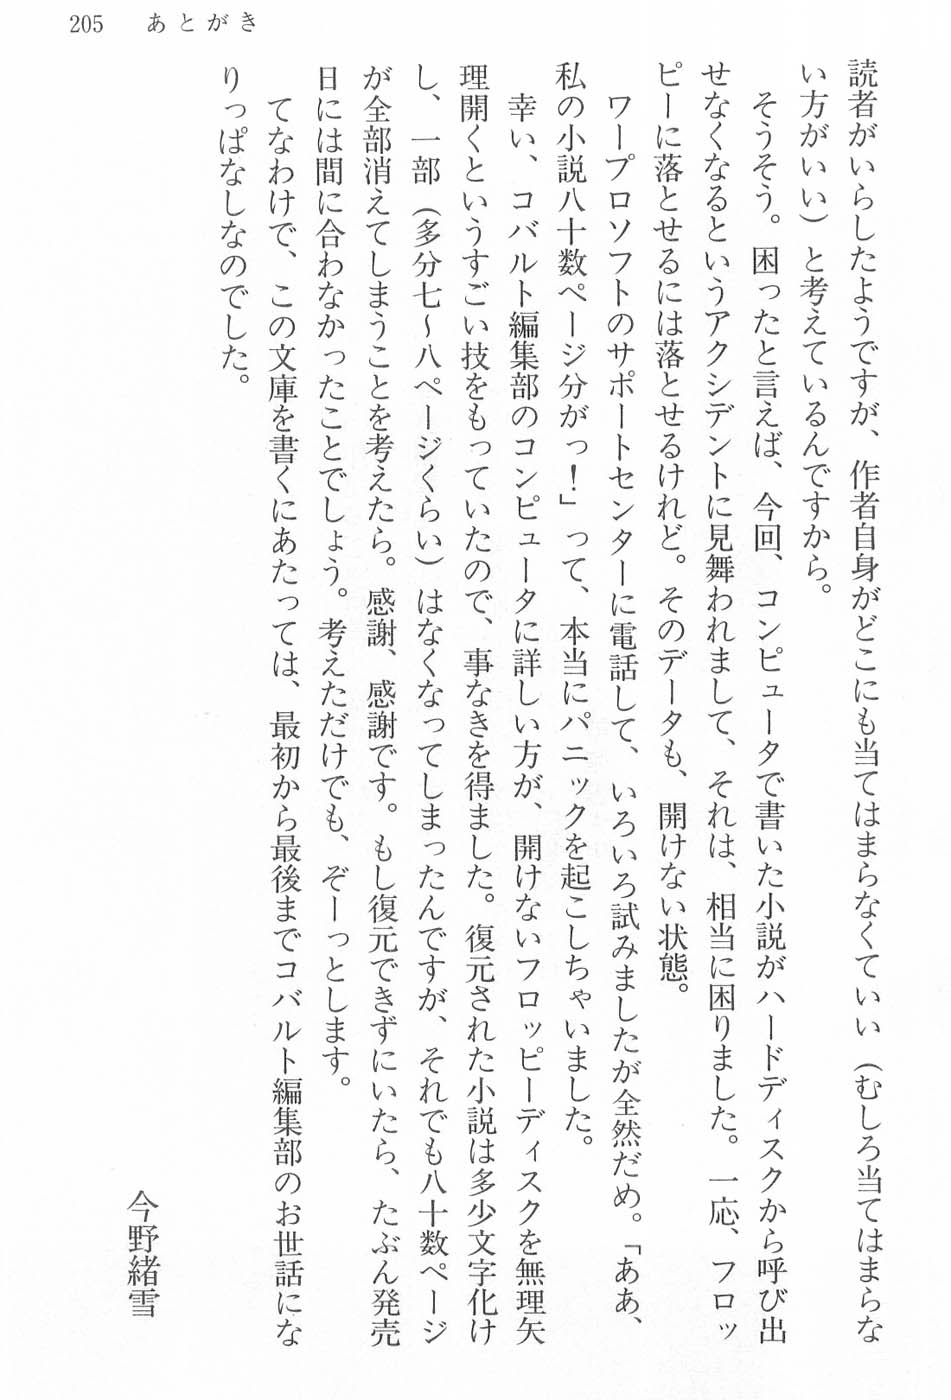 205　あとがき
読者がいらしたようですが、作者自身がどこにも当てはまらなくていい（むしろ当てはまらな
い方がいい）と考えているんですから。
　そうそう。困ったと言えば、今回、コンピュータで書いた小説がハードディスクから呼び出
せなくなるというアクシデントに見舞われまして、それは、相当に困りました。一応、フロッ
ピーに落とせるには落とせるけれど。そのデータも、開けない状態。
　ワープロソフトのサポートセンターに電話して、いろいろ試みましたが全然だめ。「ああ、
私の小説八十数ページ分がっ！」って、本当にパニックを起こしちゃいました。
　幸い、コバルト編集部のコンピュータに詳しい方が、開けないフロッピーディスクを無理矢
理開くというすごい技をもっていたので、事なきを得ました。復元された小説は多少文字化け
し、一部（多分七～八ページくらい）はなくなってしまったんですが、それでも八十数ページ
が全部消えてしまうことを考えたら。感謝、感謝です。もし復元できずにいたら、たぶん発売
日には間に合わなかったことでしょう。考えただけでも、ぞーっとします。
　てなわけで、この文庫を書くにあたっては、最初から最後までコバルト編集部のお世話にな
りっぱなしなのでした。
今野緒雪